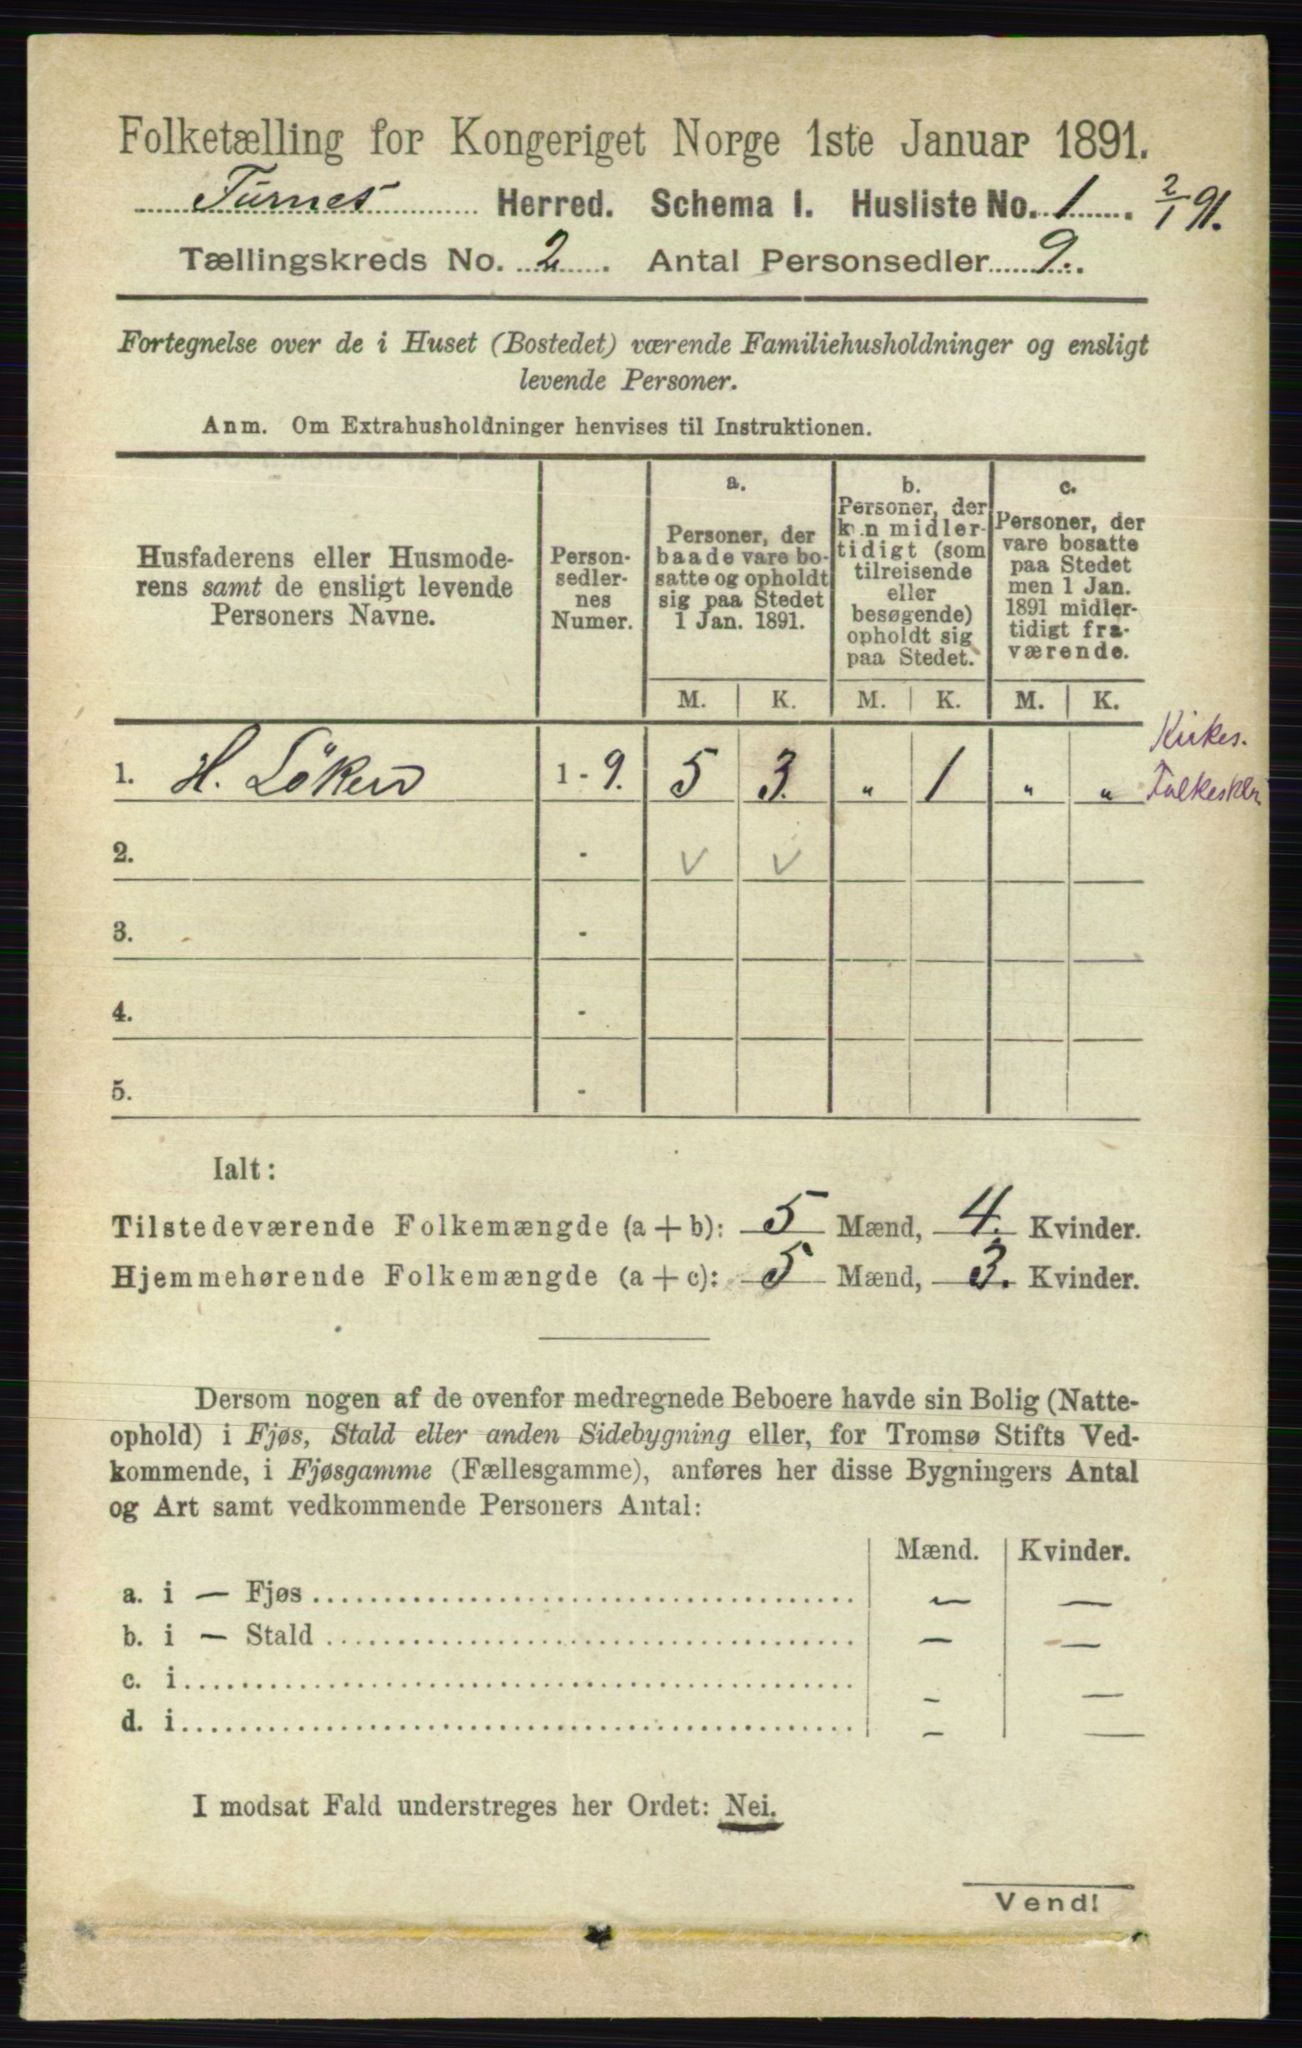 Folketælling for Kongeriget Norge 1ste Januar 1891.
Furnes Herred. Schema I. Husliste No. 1. 2/1 91.
Tællingskreds No. 2. Antal Personsedler 9.
Fortegnelse over de i Huset (Bostedet) værende Familiehusholdninger og ensligt
levende Personer.
Anm. Om Extrahusholdninger henvises til Instruktionen.
Husfaderens eller Husmode-
rens samt de ensligt levende
Personers Navne.
Person-
sedler-
nes
Numer.
a.
Personer, der
baade vare bo-
satte og opholdt
sig paa Stedet
1 Jan. 1891.
b.
Personer, der
kun midler-
tidigt (som
tilreisende
eller
besøgende)
opholdt sig
paa Stedet.
c.
Personer, der
vare bosatte
paa Stedet
men 1 Jan.
1891 midler-
tidigt fra-
værende.
M. K. M. K. M. K.
1. H. Löken 1 - 9. 5 3. " 1 " " Kirkes.
2. - v v
3. -
4. -
5. -
Ialt:
Tilstedeværende Folkemængde (a + b): 5 Mænd, 4. Kvinder.
Hjemmehørende Folkemængde (a + c): 5 Mænd, 3. Kvinder.
Dersom nogen af de ovenfor medregnede Beboere havde sin Bolig (Natte-
ophold) i Fjøs, Stald eller anden Sidebygning eller, for Tromsø Stifts Ved-
kommende, i Fjøsgamme (Fællesgamme), anføres her disse Bygningers Antal
og Art samt vedkommende Personers Antal:
Mænd. Kvinder.
a. i — Fjøs — —
b. i — Stald — —
c. i — —
d. i — —
I modsat Fald understreges her Ordet: Nei.
Vend!